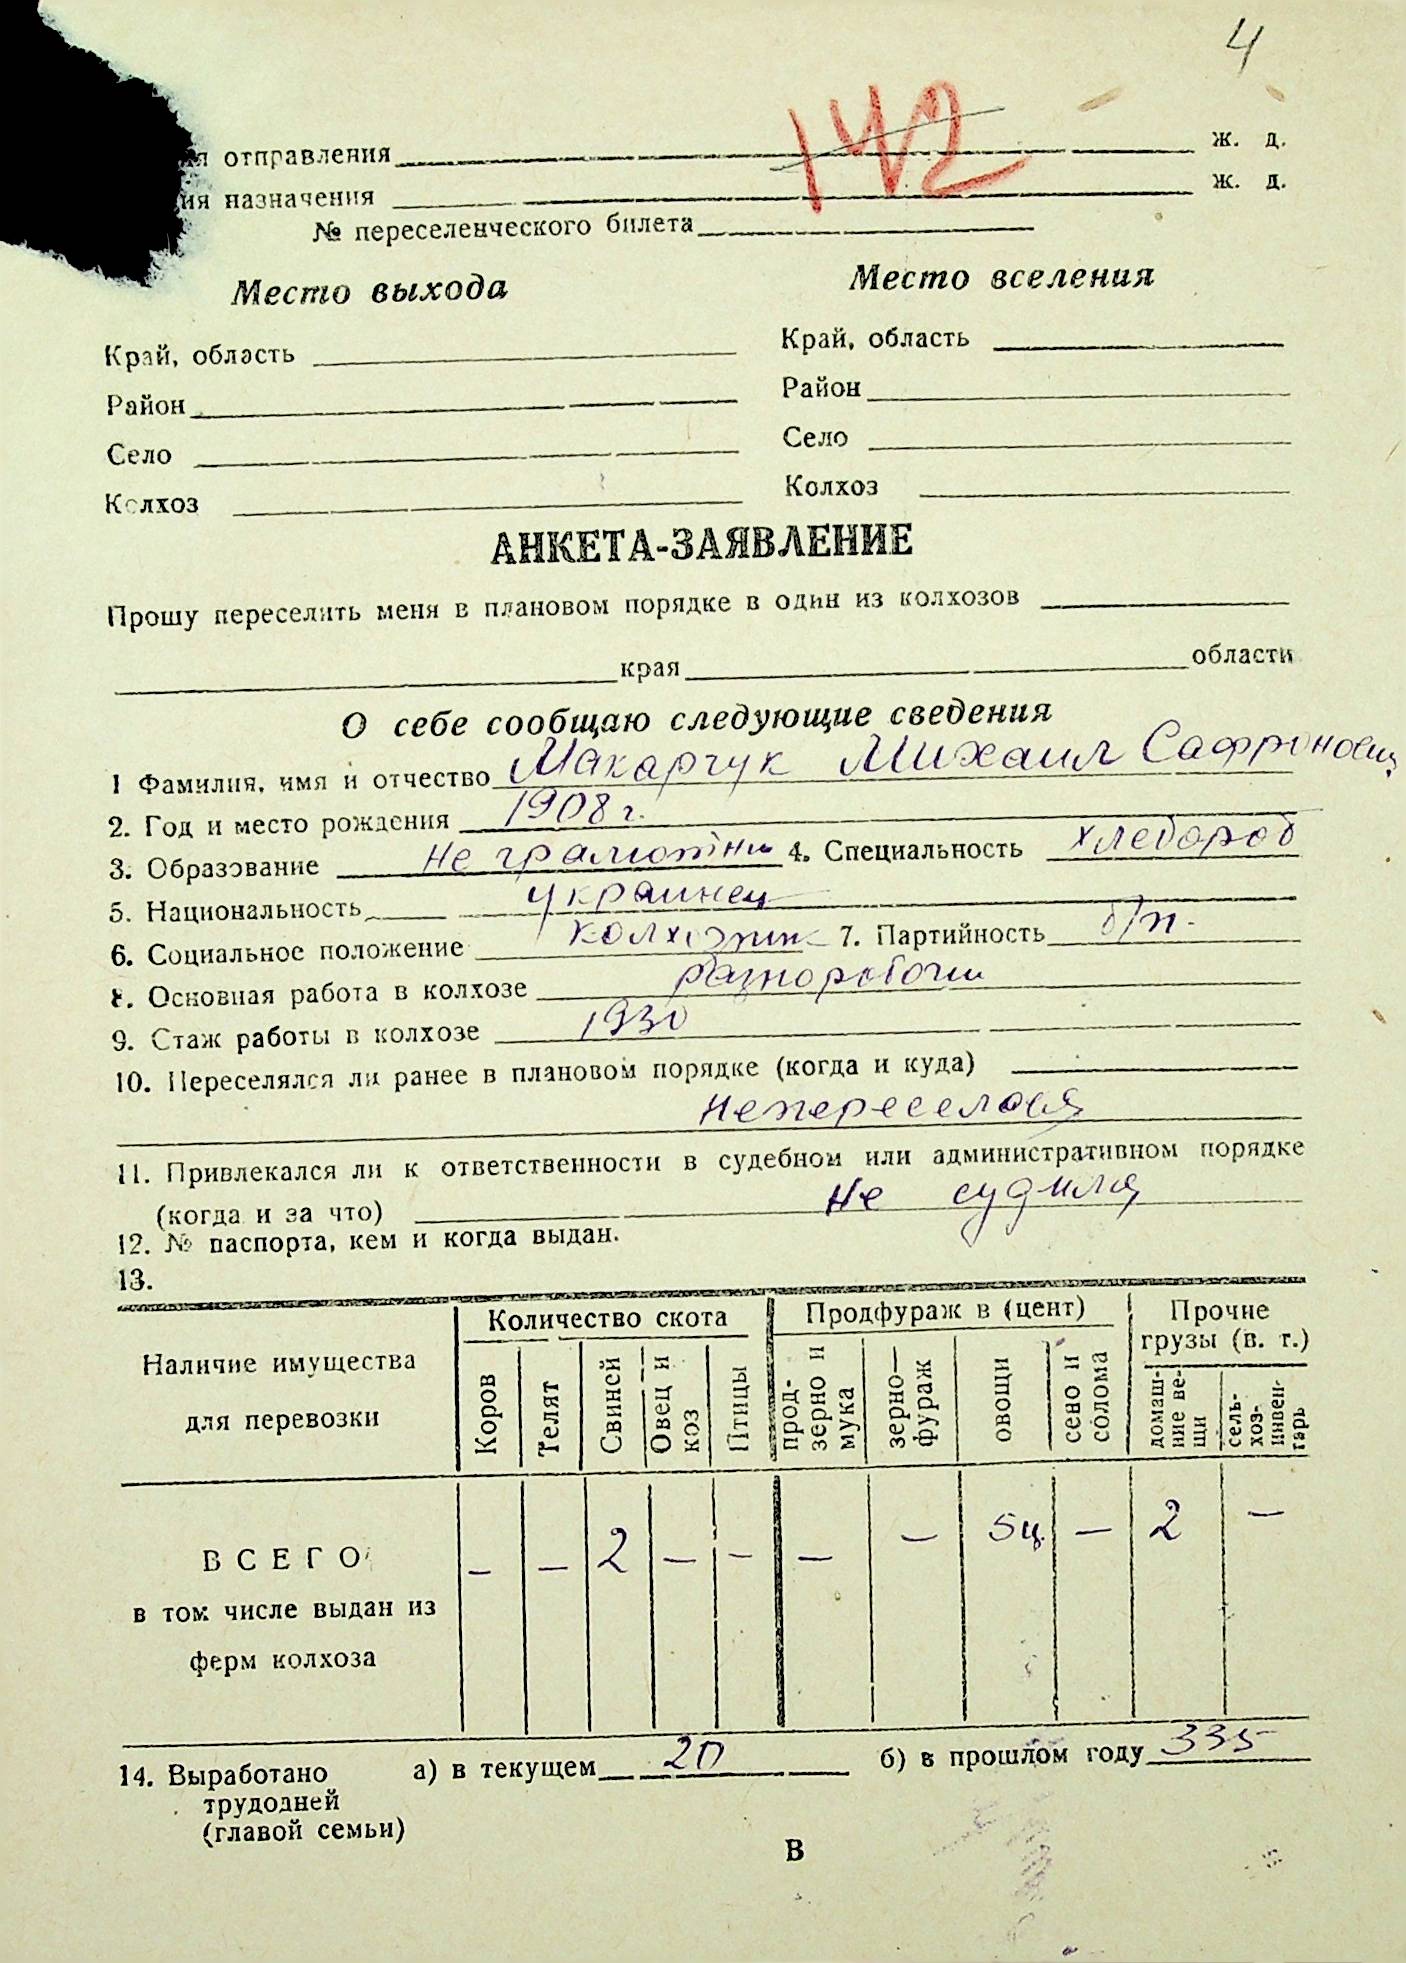 4
142
ия отправления ж. д.
ия назначения ж. д.
№ переселенческого билета
Место выхода Место вселения
Край, область Край, область
Район Район
Село Село
Колхоз Колхоз
АНКЕТА-ЗАЯВЛЕНИЕ
Прошу переселить меня в плановом порядке в один из колхозов
края области
О себе сообщаю следующие сведения
1 Фамилия, имя и отчество Макарчук Михаил Сафронович
2. Год и место рождения 1908 г.
3. Образование не грамотни 4. Специальность хлебороб
5. Национальность украинец
6. Социальное положение колхозник 7. Партийность б/п.
8. Основная работа в колхозе разноробочи
9. Стаж работы в колхозе 1930
10. Переселялся ли ранее в плановом порядке (когда и куда)
непереселося
11. Привлекался ли к ответственности в судебном или административном порядке
(когда и за что) не судился
12. № паспорта, кем и когда выдан.
13.
Наличие имущества для перевозки Количество скота Продфураж в (цент) Прочие грузы (в. т.)
Коров Телят Свиней Овец и коз Птицы прод-зерно и мука зерно—фураж овощи сено и солома домаш-ние ве-щи сель-хоз-инвен-тарь
ВСЕГО — — 2 — — — — 5ц. — 2 —
в том числе выдан из
ферм колхоза
14. Выработано а) в текущем 20 б) в прошлом году 335
трудодней
(главой семьи)
В